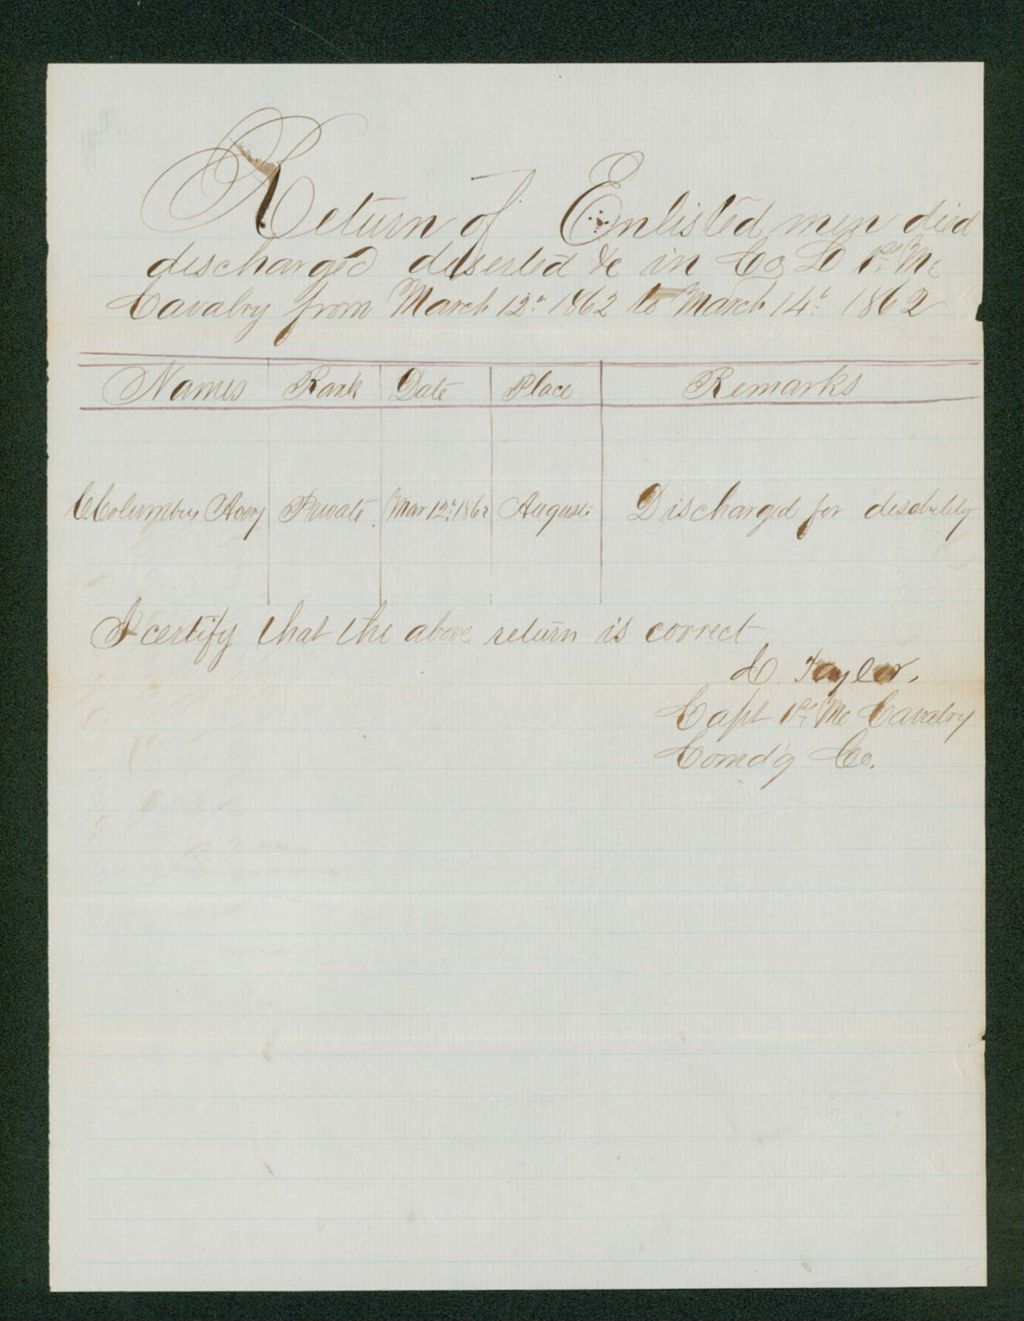 Return of Enlisted men died
discharged deserted &c in Co D 1st Me
Cavalry from March 12th 1862 to March 14th 1862
Names Rank Date Place Remarks
C. Columbus Avery Private Mar 12th 1862 Augusta Discharg'd for disability
I certify that the above return is correct
C. Taylor.
Capt 1st Me Cavalry
Comd'g Co.